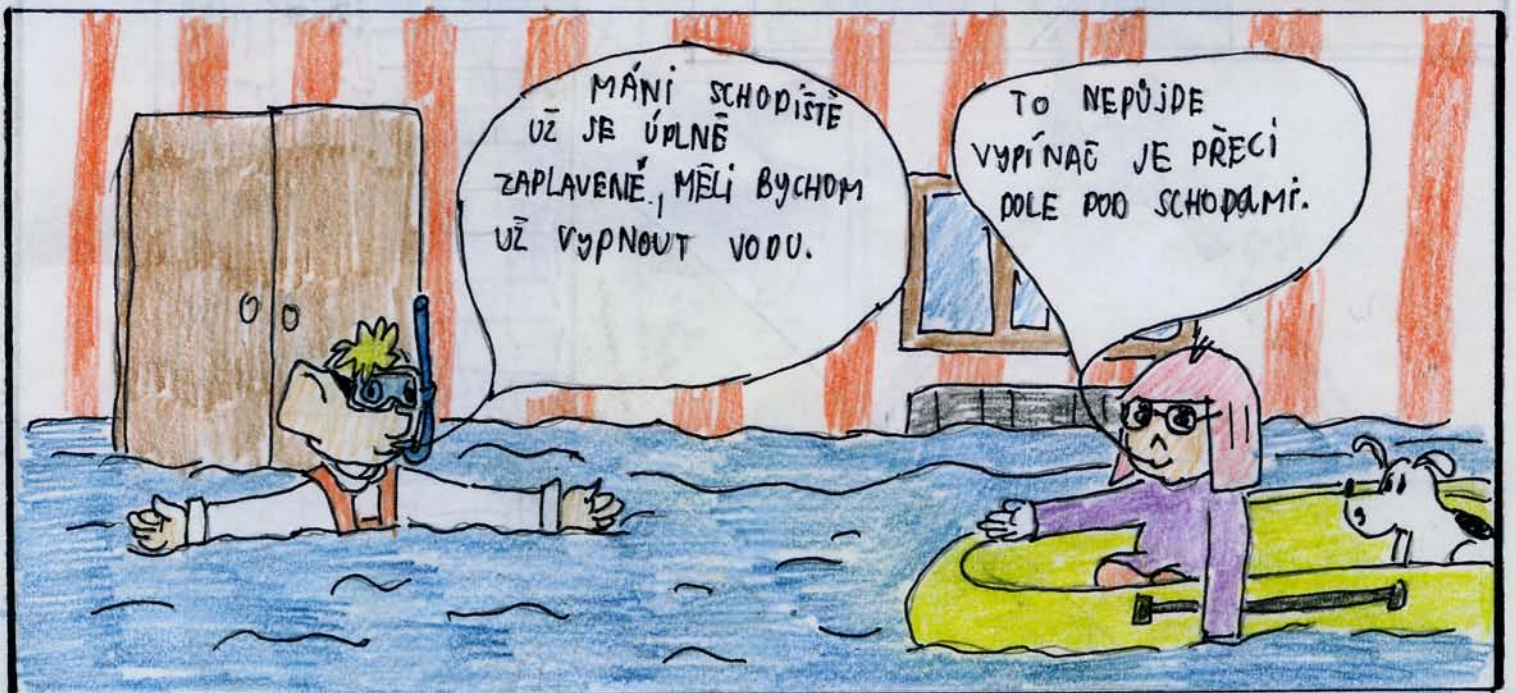 MÁNI SCHODIŠTĚ
UŽ JE ÚPLNĚ
ZAPLAVENÉ, MĚLI BYCHOM
UŽ VYPNOUT VODU.
TO NEPŮJDE
VYPÍNAČ JE PŘECI
DOLE POD SCHODAMI.